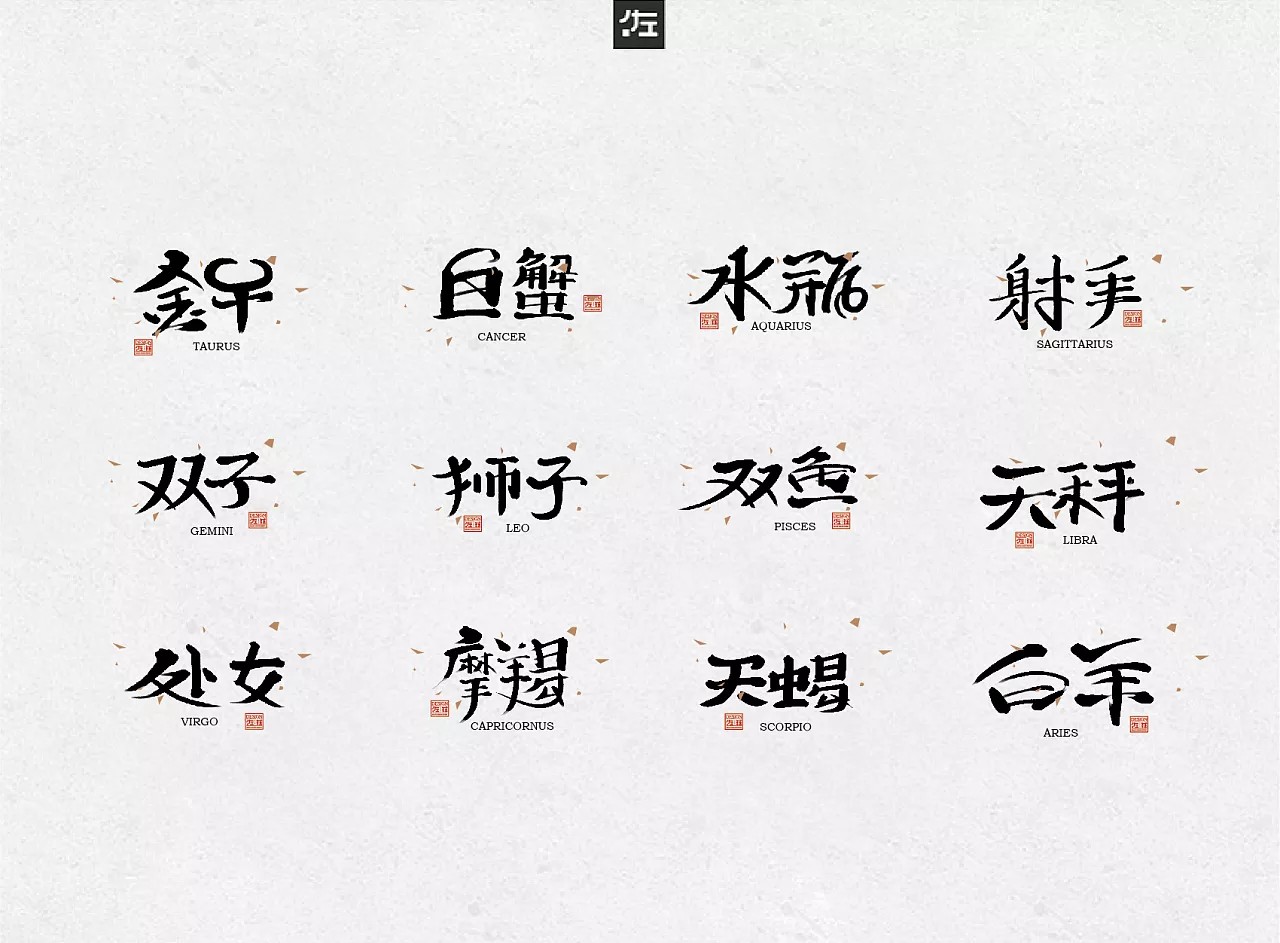 佐
金牛
TAURUS
巨蟹
CANCER
水瓶
AQUARIUS
射手
SAGITTARIUS
双子
GEMINI
狮子
LEO
双鱼
PISCES
天秤
LIBRA
处女
VIRGO
摩羯
CAPRICORNUS
天蝎
SCORPIO
白羊
ARIES